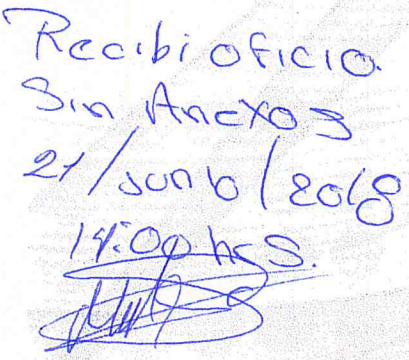 Recibi oficio.
Sin Anexos
21/Junio/2018
14:00 hrs.